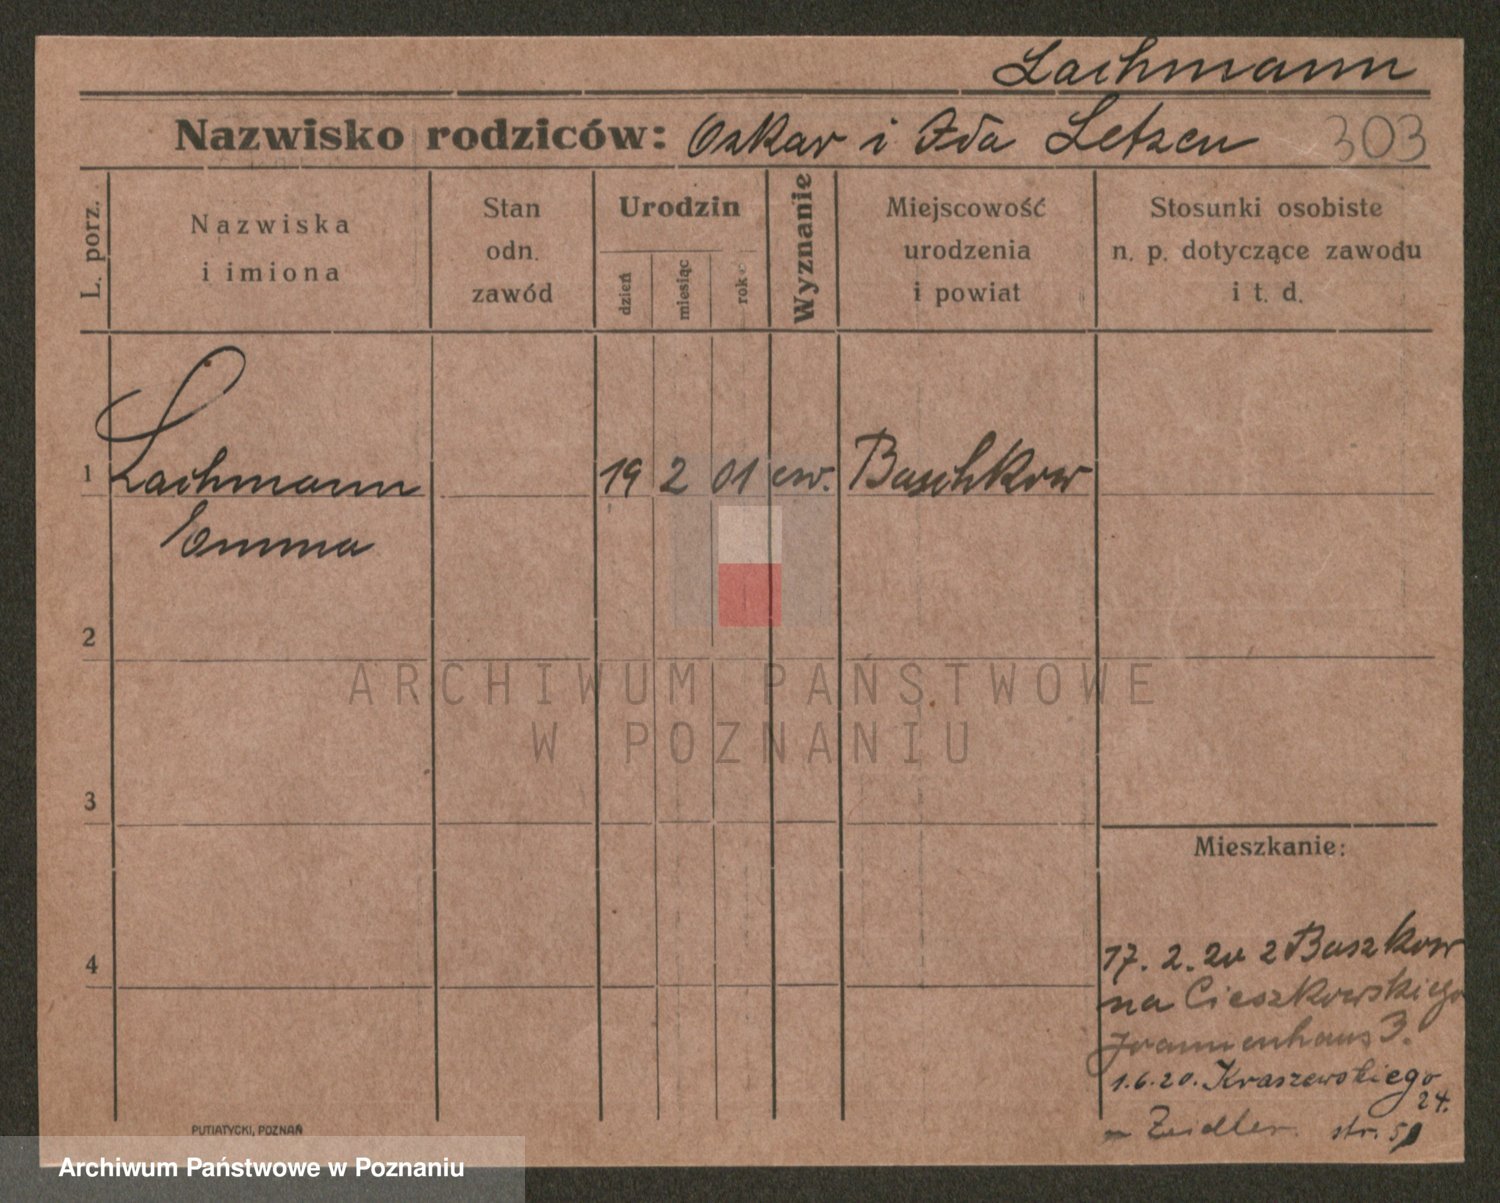 Lachmann
Nazwisko rodziców: Oskar i Ida Letzen 303
L. porz.
Nazwiska
i imiona
Stan
odn.
zawód
Urodzin
dzień
miesiąc
rok
Wyznanie
Miejscowość
urodzenia
i powiat
Stosunki osobiste
n. p. dotyczące zawodu
i t. d.
1 Lachmann 19 2 01 ew. Baschkow
Emma
2
ARCHIWUM PAŃSTWOWE
W POZNANIU
3
Mieszkanie:
4
17. 2. 20 z Baszkow
na Cieszkowskiego
3.
1.6.20. Kraszewskiego
24.
Zeidler. str. 51
PUTIATYCKI, POZNAŃ
Archiwum Państwowe w Poznaniu